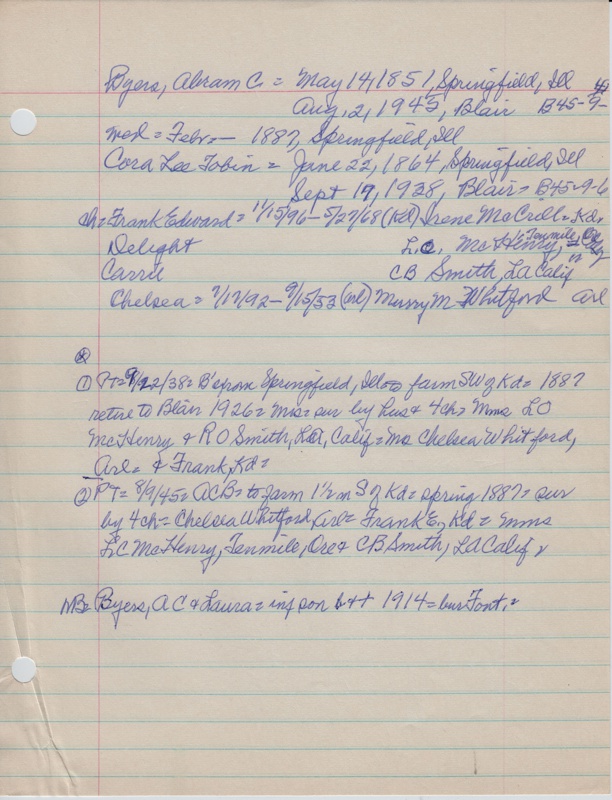 Byers, Abram C. = May 14, 1851, Springfield, Ill
Aug. 2, 1945, Blair B45-9-
med = Febr. — 1887, Springfield, Ill
Cora Lee Tobin = June 22, 1864, Springfield, Ill
Sept 19, 1938, Blair = B45-9-6
ch = Frank Edward = 11/15/96 - 5/27/68 (Kd) Irene = Kd,
Delight L.C. McHenry, Tenmile, Ore
Carril CB Smith, LA Calif
Chelsea = 7/17/92 - 9/15/53 (arl) Murry M Whitford arl
① PT = 9/22/38 = B's from Springfield, Ill to farm SW of Kd = 1887
retire to Blair 1926 = Mrs = sur by hus & 4ch = Mmes LO
McHenry & RO Smith, LA, Calif = Ms Chelsea Whitford,
Arl = & Frank, Kd =
② PT = 8/9/45 = ACB = to farm 1½ m S of Kd = spring 1887 = sur
by 4ch = Chelsea Whitford, Arl = Frank E, Kd = mms
LC McHenry, Tenmile, Ore & CB Smith, LA Calif
NB = Byers, AC & Laura = inf son b & + 1914 = bur Font. =